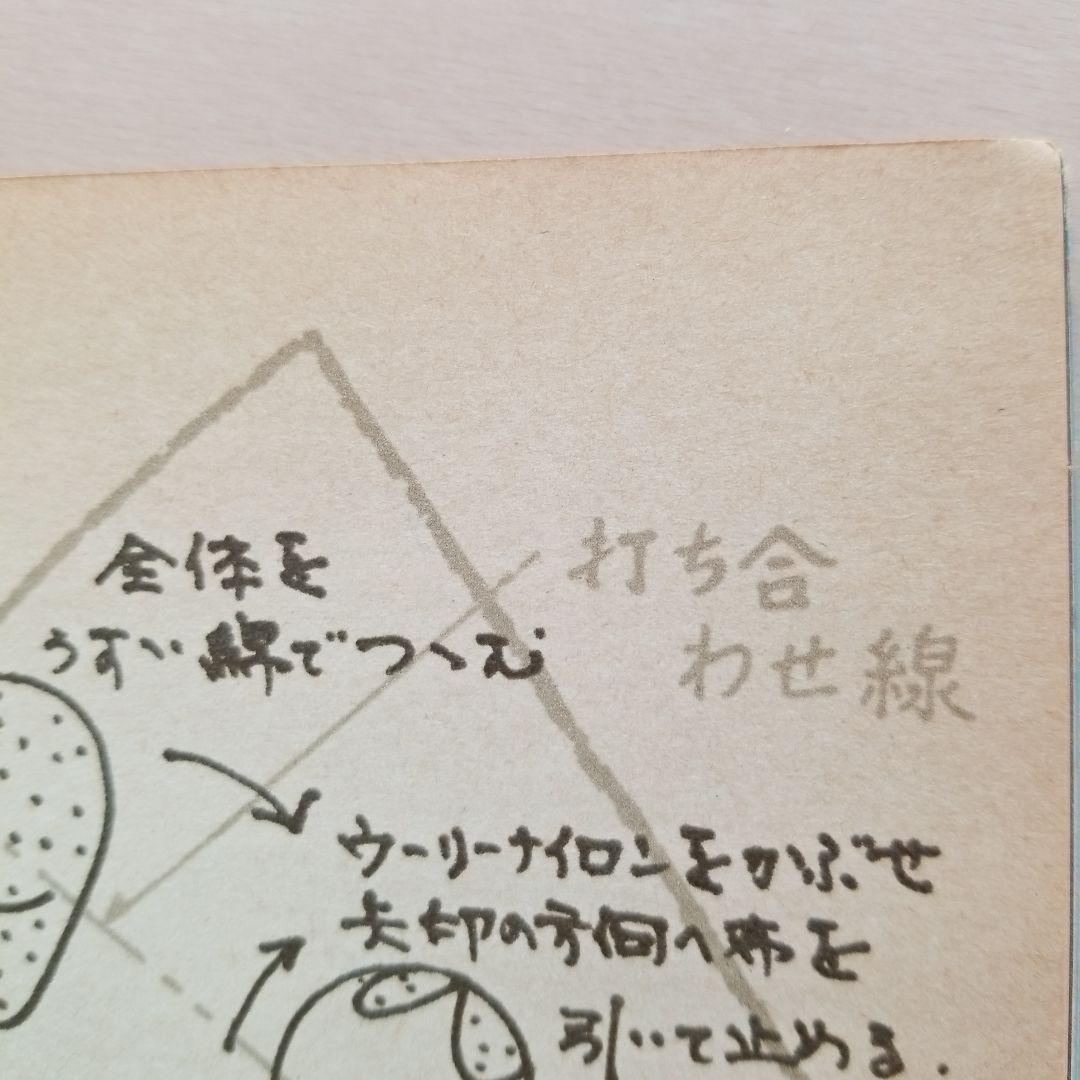 全体を
うすい綿でつゝむ
打ち合
わせ線
ウーリーナイロンをかぶせ
矢印の方向へ布を
引いて止める.